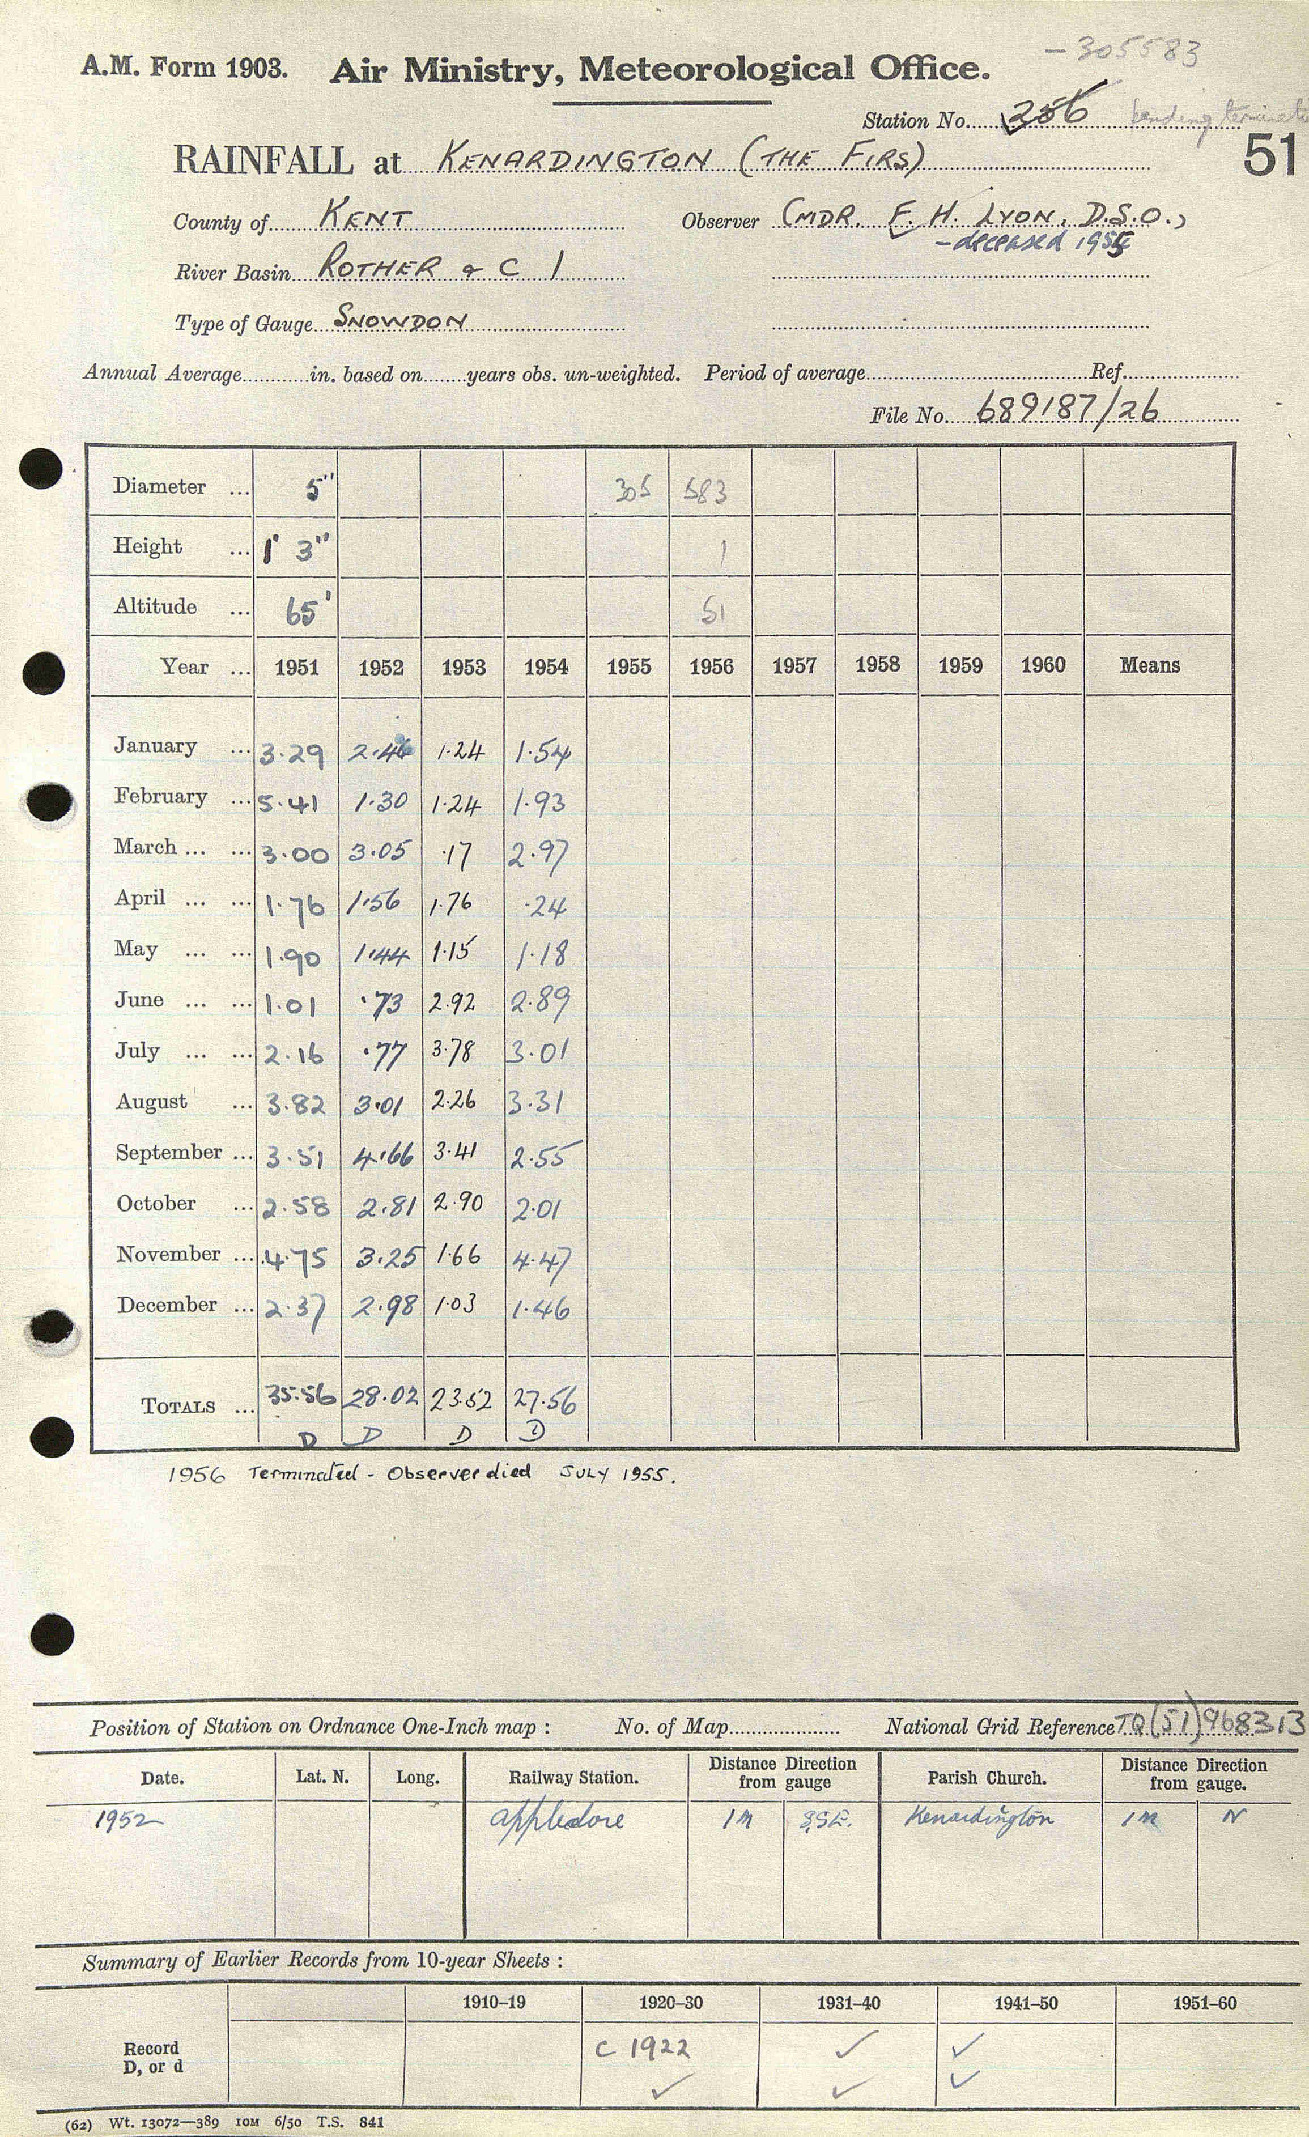 — 305583
A.M. Form 1903. Air Ministry, Meteorological Office.
Station No. 356 pending terminate
51
RAINFALL at KENARDINGTON (THE FIRS)
County of KENT Observer CMDR. F. H. LYON, D.S.O.,
- deceased 1955
River Basin ROTHER & C 1
Type of Gauge SNOWDON
Annual Average in. based on years obs. un-weighted. Period of average Ref.
File No. 689187/26
Diameter ... 5" 305 583
Height ... 1' 3" 1
Altitude ... 65' 51
Year ... 1951 1952 1953 1954 1955 1956 1957 1958 1959 1960 Means
January ... 3.29 2.46 1.24 1.54
February ... 5.41 1.30 1.24 1.93
March ... ... 3.00 3.05 .17 2.97
April ... ... 1.76 1.56 1.76 .24
May ... ... 1.90 1.44 1.15 1.18
June ... ... 1.01 .73 2.92 2.89
July ... ... 2.16 .77 3.78 3.01
August ... 3.82 3.01 2.26 3.31
September ... 3.51 4.66 3.41 2.55
October ... 2.58 2.81 2.90 2.01
November ... 4.75 3.25 1.66 4.47
December ... 2.37 2.98 1.03 1.46
TOTALS ... 35.56 28.02 23.52 27.56
D D D D
1956 Terminated - Observer died JULY 1955.
Position of Station on Ordnance One-Inch map : No. of Map National Grid Reference TQ(51)968313
Date. Lat. N. Long. Railway Station. Distance Direction from gauge Parish Church. Distance Direction from gauge.
1952 Appledore 1 M SSE. Kenardington 1 M N
Summary of Earlier Records from 10-year Sheets :
1910–19 1920–30 1931–40 1941–50 1951–60
Record C 1922 ✓ ✓
D, or d ✓ ✓ ✓
(62) Wt. 13072—389 10M 6/50 T.S. 841